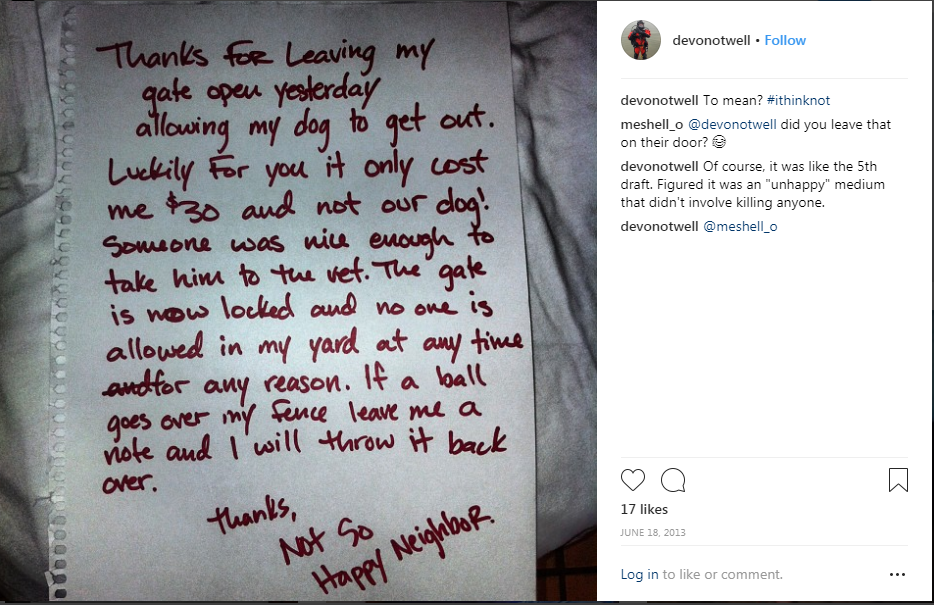 Thanks For Leaving my
gate open yesterday
allowing my dog to get out.
Luckily For you it only cost
me $30 and not our dog!
Someone was nice enough to
take him to the vet. The gate
is now locked and no one is
allowed in my yard at any time
and for any reason. If a ball
goes over my fence leave me a
note and I will throw it back
over.
Thanks,
Not So
Happy Neighbor.
devonotwell • Follow
devonotwell To mean? #ithinknot
meshell_o @devonotwell did you leave that
on their door? 😂
devonotwell Of course, it was like the 5th
draft. Figured it was an "unhappy" medium
that didn't involve killing anyone.
devonotwell @meshell_o
17 likes
JUNE 18, 2013
Log in to like or comment.